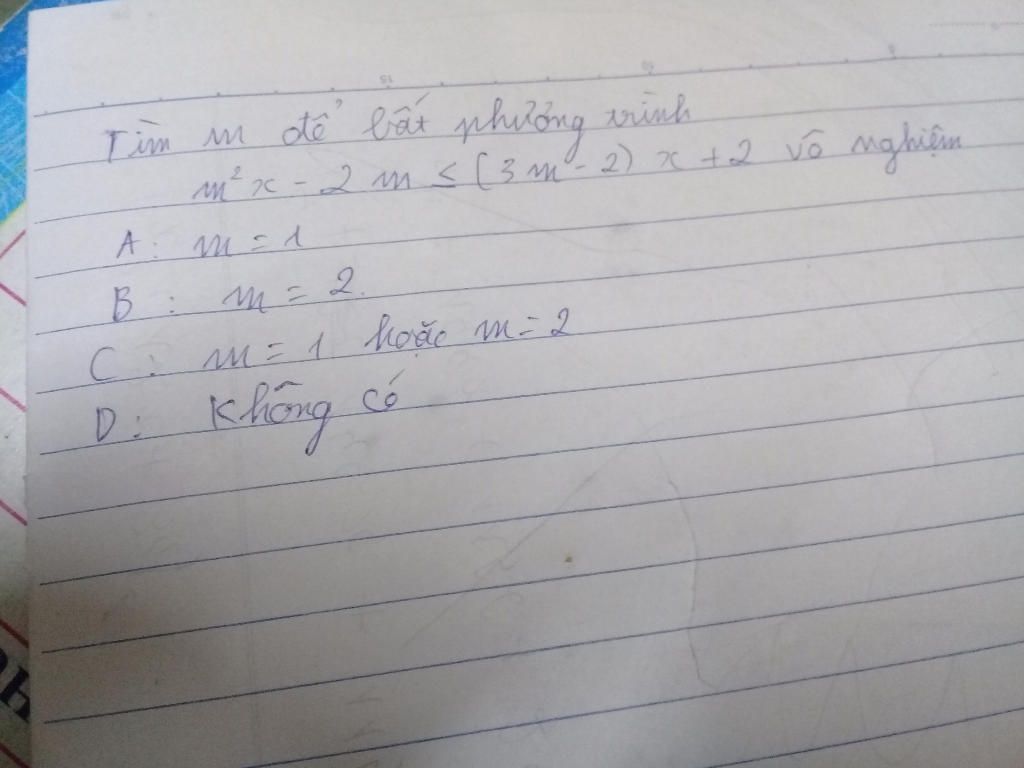 Tìm m để bất phương trình
m²x - 2m ≤ (3m - 2) x + 2 vô nghiệm
A: m = 1
B: m = 2.
C: m = 1 hoặc m = 2
D: Không có